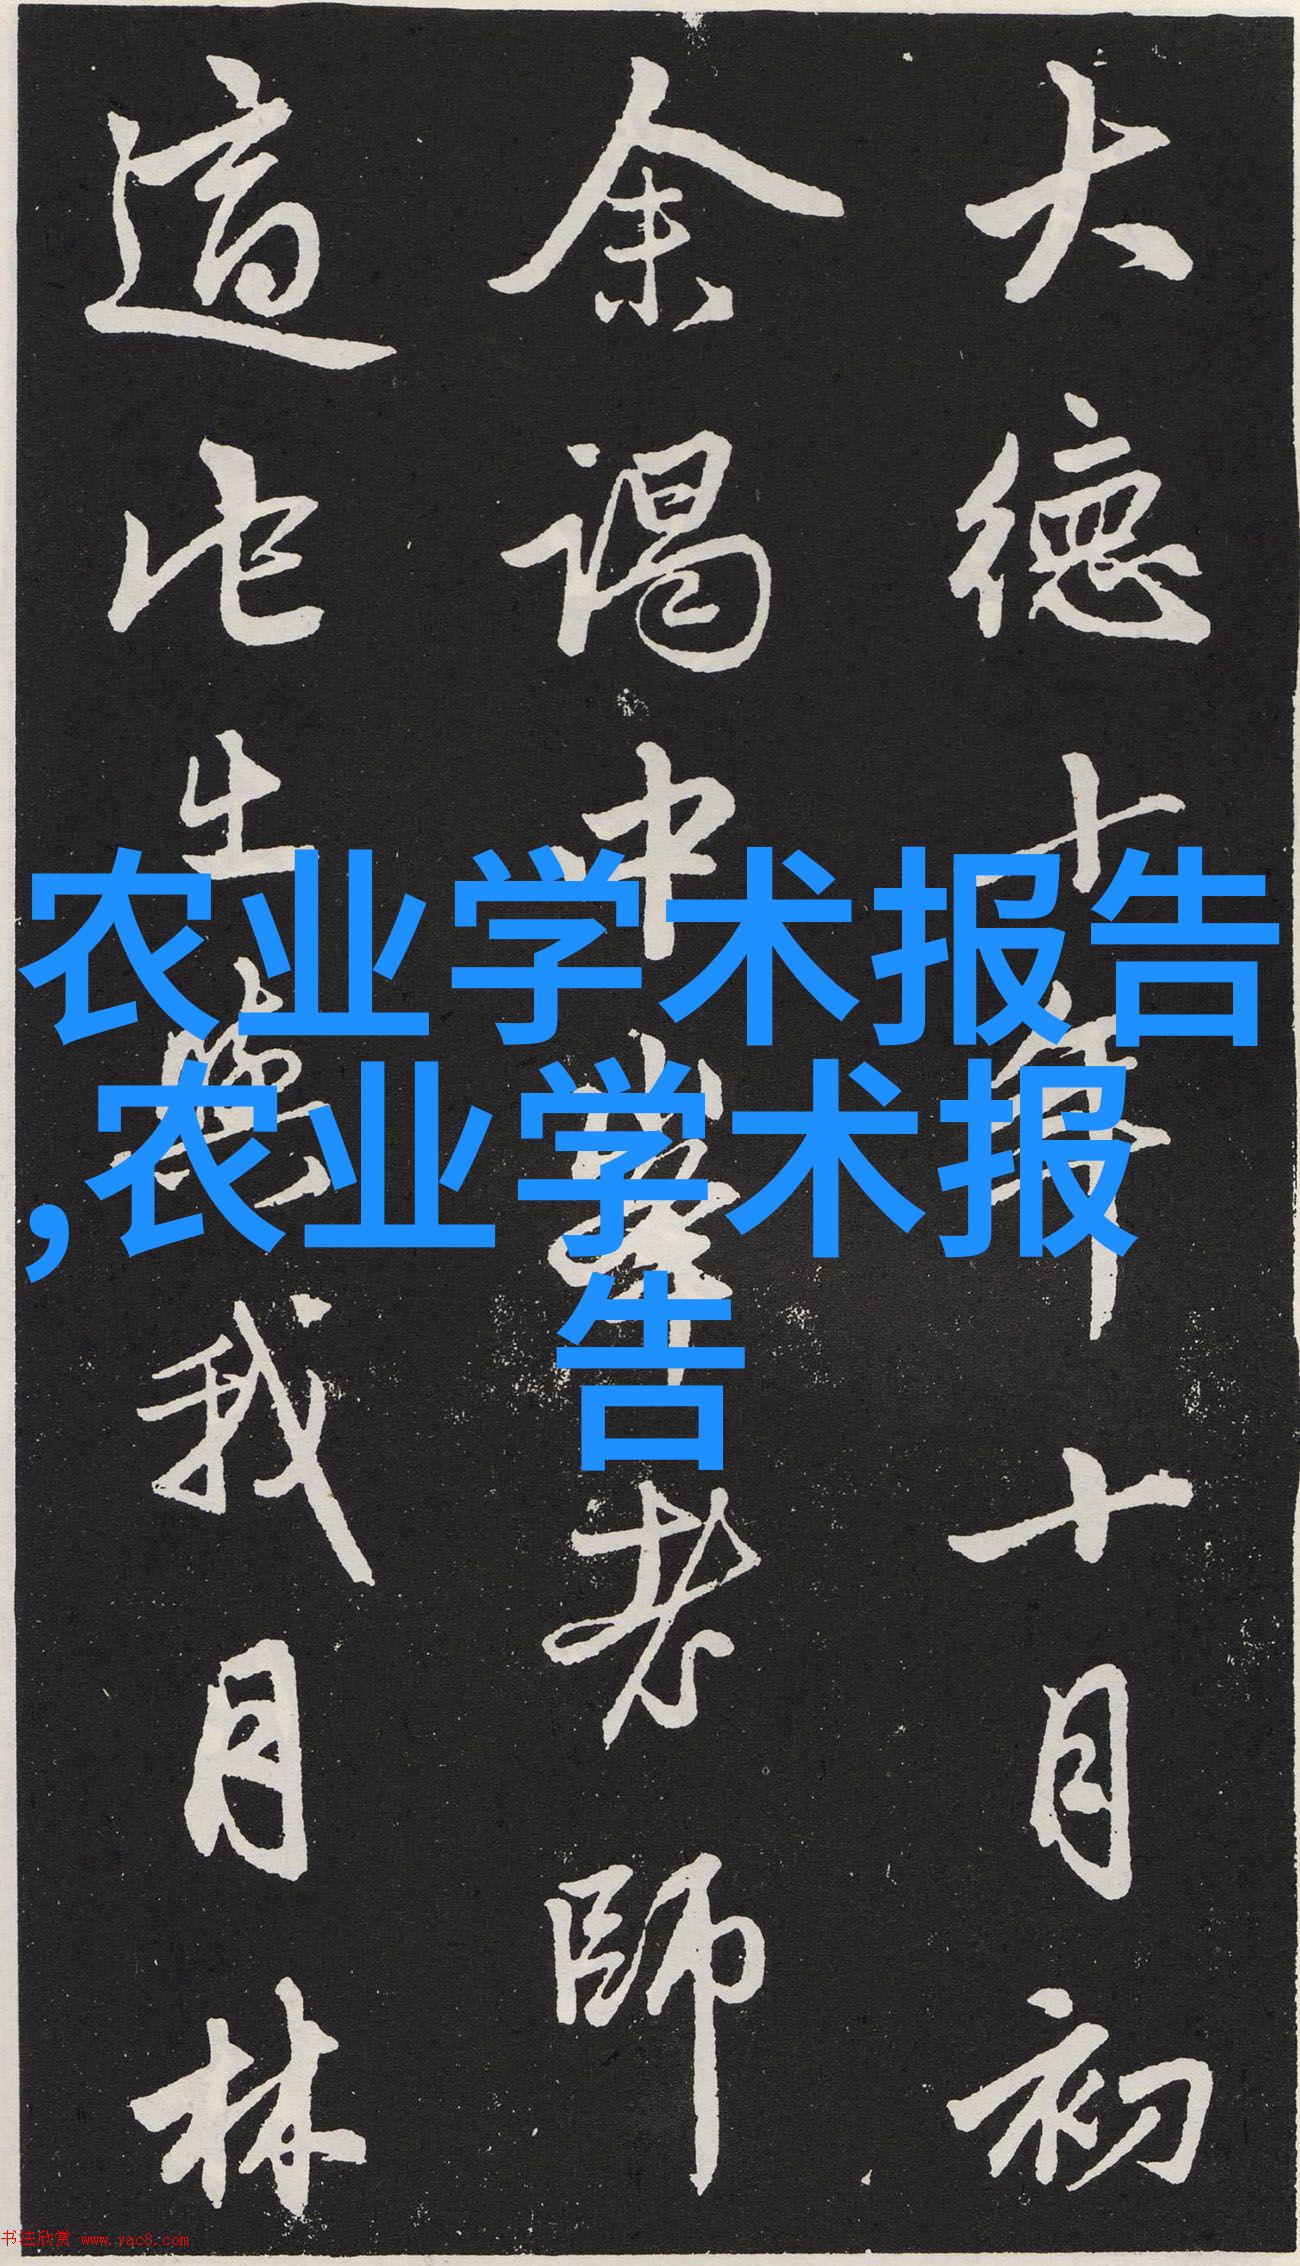 大德十年十月初
余謁中峯老師
適他出我月林
农业学术报告
,农业学术报
告
书法欣赏 www.yac8.com